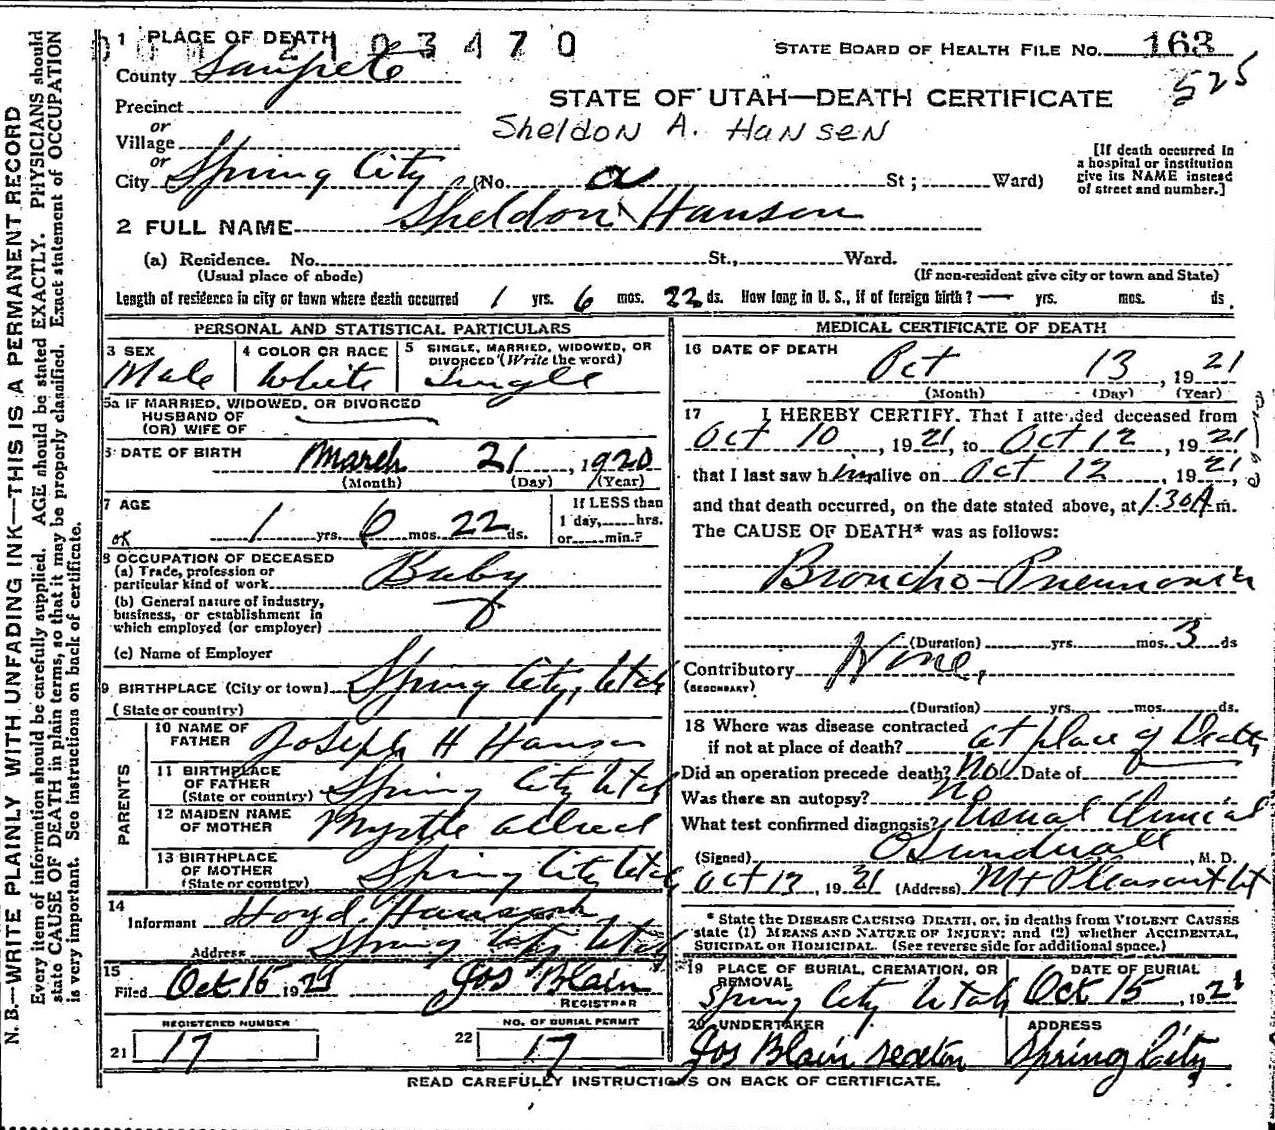 1 PLACE OF DEATH
2103470
STATE BOARD OF HEALTH FILE No. 163
525
County Sanpete
Precinct
or
Village
or
City Spring City (No. St; Ward)
STATE OF UTAH—DEATH CERTIFICATE
Sheldon A. Hansen
[If death occurred in
a hospital or institution
give its NAME instead
of street and number.]
a
2 FULL NAME Sheldon Hanson
(a) Residence. No. St., Ward.
(Usual place of abode) (If non-resident give city or town and State)
Length of residence in city or town where death occurred 1 yrs. 6 mos. 22 ds. How long in U. S., if of foreign birth? — yrs. mos. ds.
PERSONAL AND STATISTICAL PARTICULARS
3 SEX
Male
4 COLOR OR RACE
White
5 SINGLE, MARRIED, WIDOWED, OR
DIVORCED (Write the word)
Single
5a IF MARRIED, WIDOWED, OR DIVORCED
HUSBAND OF
(OR) WIFE OF
DATE OF BIRTH
March 21, 1920
(Month) (Day) (Year)
7 AGE
OK 1 yrs. 6 mos. 22 ds.
If LESS than
1 day, hrs.
or min.?
8 OCCUPATION OF DECEASED
(a) Trade, profession or
particular kind of work Baby
(b) General nature of industry,
business, or establishment in
which employed (or employer)
(c) Name of Employer
9 BIRTHPLACE (City or town) Spring City, Utah
(State or country)
PARENTS
10 NAME OF
FATHER Joseph H Hansen
11 BIRTHPLACE
OF FATHER
(State or country) Spring City Utah
12 MAIDEN NAME
OF MOTHER Myrtle Allred
13 BIRTHPLACE
OF MOTHER
(State or country) Spring City Utah
14
Informant Hansen
Address Spring City Utah
15
Filed Oct 15 1921 Jos Blain
REGISTRAR
REGISTERED NUMBER
21 17
NO. OF BURIAL PERMIT
22 17
MEDICAL CERTIFICATE OF DEATH
16 DATE OF DEATH
Oct 13, 1921
(Month) (Day) (Year)
17 I HEREBY CERTIFY. That I attended deceased from
Oct 10, 1921, to Oct 12, 1921
that I last saw him alive on Oct 12, 1921,
and that death occurred, on the date stated above, at 1.30 A m.
The CAUSE OF DEATH* was as follows:
Broncho-Pneumonia
(Duration) yrs. mos. 3 ds
Contributory None,
(SECONDARY)
(Duration) yrs. mos. ds.
18 Where was disease contracted
if not at place of death? at place of Death
Did an operation precede death? No Date of
Was there an autopsy? no
What test confirmed diagnosis? Usual Clinical
(Signed) O Sundwall, M. D.
Oct 13, 1921 (Address) Mt Pleasant Ut
* State the DISEASE CAUSING DEATH, or, in deaths from VIOLENT CAUSES
state (1) MEANS AND NATURE OF INJURY; and (2) whether ACCIDENTAL,
SUICIDAL OR HOMICIDAL. (See reverse side for additional space.)
19 PLACE OF BURIAL, CREMATION, OR
REMOVAL
Spring City Utah
DATE OF BURIAL
Oct 15, 1921
20 UNDERTAKER
Jos Blain sexton
ADDRESS
Spring City
READ CAREFULLY INSTRUCTIONS ON BACK OF CERTIFICATE.
N. B.—WRITE PLAINLY WITH UNFADING INK—THIS IS A PERMANENT RECORD
Every item of information should be carefully supplied. AGE should be stated EXACTLY. PHYSICIANS should
state CAUSE OF DEATH in plain terms, so that it may be properly classified. Exact statement of OCCUPATION
is very important. See instructions on back of certificate.